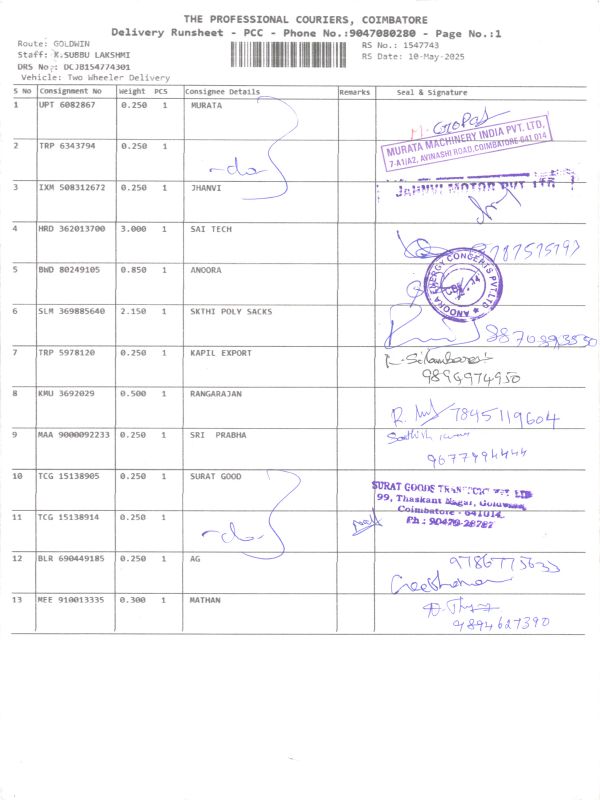 THE PROFESSIONAL COURIERS, COIMBATORE
Delivery Runsheet - PCC - Phone No.:9047080280 - Page No.:1
Route: GOLDWIN
RS No.: 1547743
Staff: K.SUBBU LAKSHMI
RS Date: 10-May-2025
DRS No.: DCJB154774301
Vehicle: Two Wheeler Delivery
S No Consignment No Weight PCS Consignee Details Remarks Seal & Signature
1 UPT 6082867 0.250 1 MURATA
M. GOPAL
MURATA MACHINERY INDIA PVT. LTD,
7-A1/A2, AVINASHI ROAD, COIMBATORE-641 014
2 TRP 6343794 0.250 1 -do-
3 IXM 508312672 0.250 1 JHANVI
JAHNVI MOTOR PVT LTD
4 HRD 362013700 3.000 1 SAI TECH
5 BWD 80249105 0.850 1 ANOORA
CBE-14
6 SLM 369885640 2.150 1 SKTHI POLY SACKS
7 TRP 5978120 0.250 1 KAPIL EXPORT
9894974950
8 KMU 3692029 0.500 1 RANGARAJAN
7845119604
9 MAA 9000092233 0.250 1 SRI PRABHA
9677994444
10 TCG 15138905 0.250 1 SURAT GOOD
SURAT GOODS
99, Thaskant Nagar, Goldwins
Coimbatore - 641014.
11 TCG 15138914 0.250 1 -do-
12 BLR 690449185 0.250 1 AG
13 MEE 910013335 0.300 1 MATHAN
9894627390